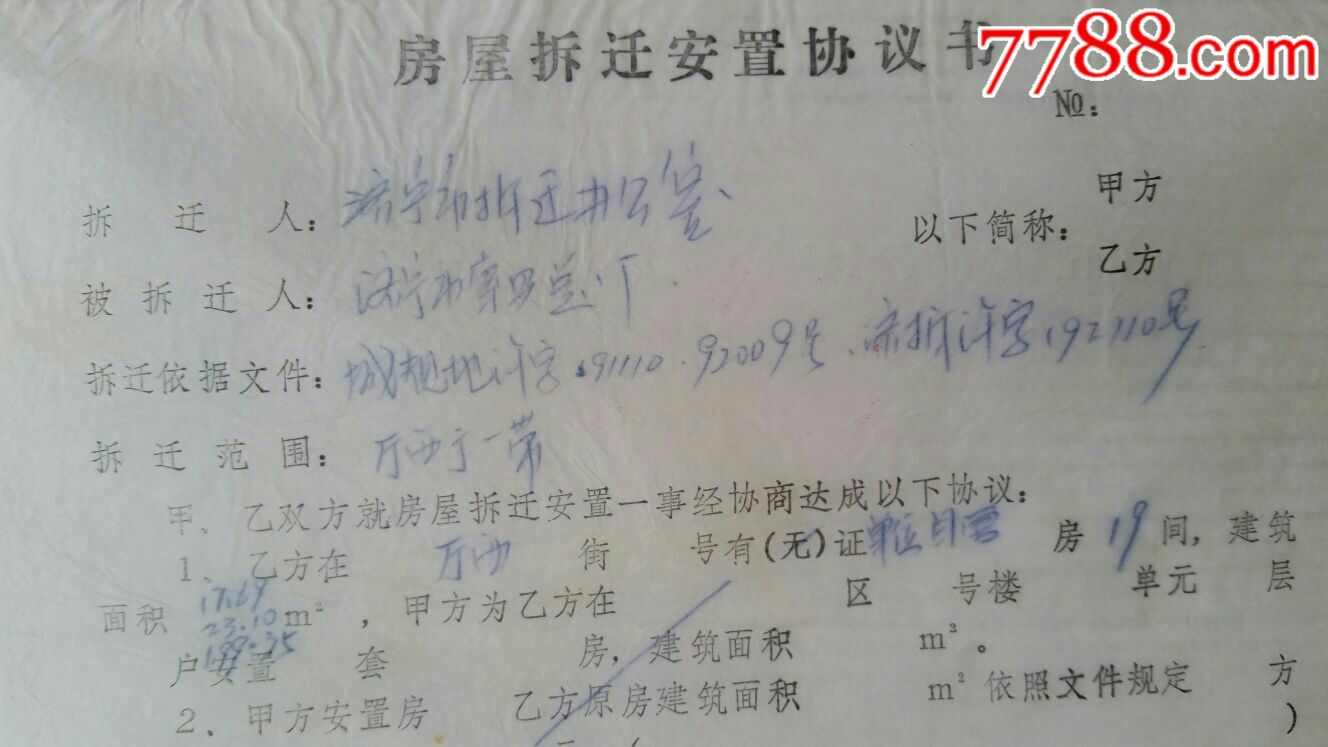 房屋拆迁安置协议书
7788.com
№:
拆迁人: 济宁市拆迁办公室
以下简称: 甲方
乙方
被拆迁人: 济宁市
拆迁依据文件: 城规地许字 91110.92009号、济拆许字 92110号
拆迁范围: 厅西街一带
甲、乙双方就房屋拆迁安置一事经协商达成以下协议:
1、乙方在 厅西 街 号有(无)证单位自管 房 19 间, 建筑
面积 17.69 23.10 189.35 m², 甲方为乙方在 区 号楼 单元 层
户安置 套 房, 建筑面积 m²。
2、甲方安置房 乙方原房建筑面积 m²依照文件规定 方
元( )